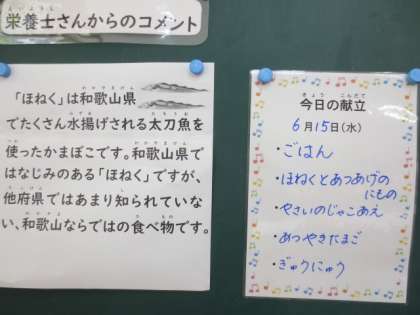 栄養士さんからのコメント
「ほねく」は和歌山県
でたくさん水揚げされる太刀魚を
使ったかまぼこです。和歌山県で
はなじみのある「ほねく」ですが、
他府県ではあまり知られていな
い、和歌山ならではの食べ物です。
今日の献立
6月15日(水)
・ごはん
・ほねくとあつあげの
にもの
・やさいのじゃこあえ
・あつやきたまご
・ぎゅうにゅう